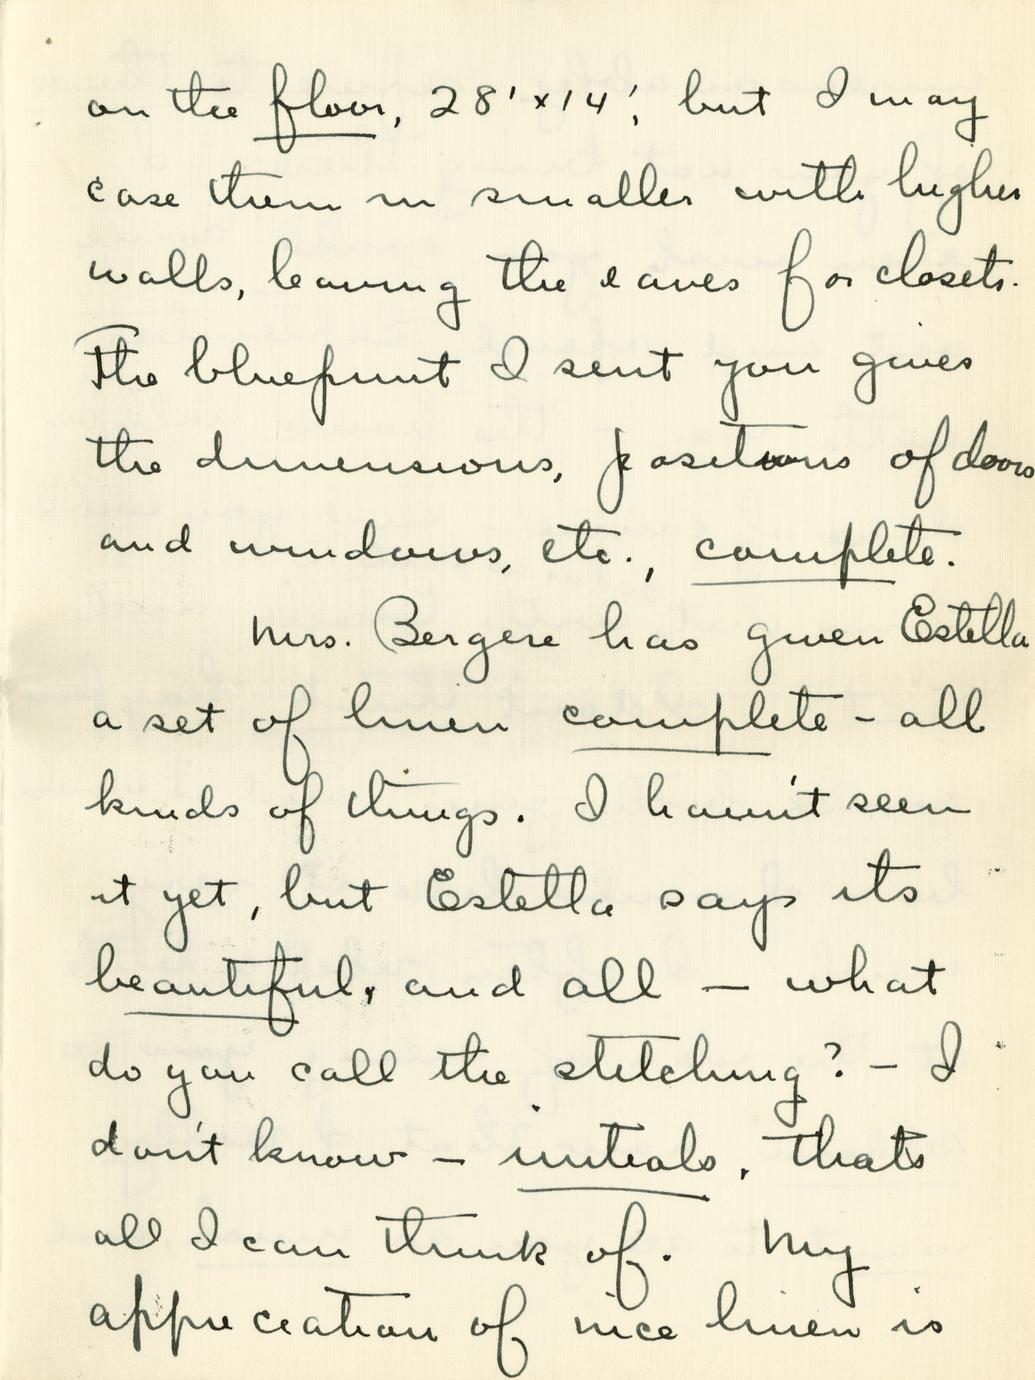 on the floor, 28' x 14', but I may
case them in smaller with higher
walls, leaving the eaves for closets.
The blueprint I sent you gives
the dimensions, positions of doors
and windows, etc., complete.
Mrs. Bergere has given Estella
a set of linen complete - all
kinds of things. I haven't seen
it yet, but Estella says its
beautiful, and all — what
do you call the stitching? — I
don't know — initials, thats
all I can think of. My
appreciation of nice linen is